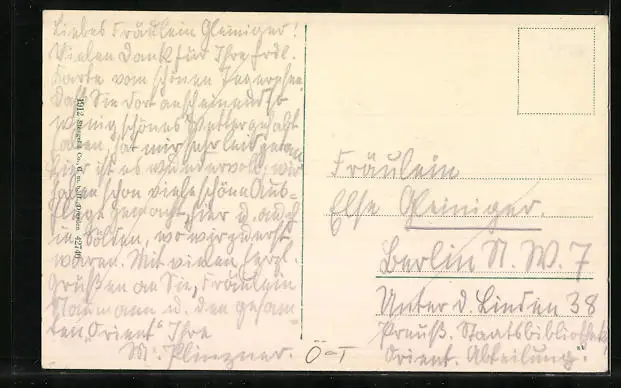 Liebes Fräulein Gleiniger!
Vielen Dank für Ihre frdl.
Karte vom schönen Tegernsee.
Daß Sie dort anscheinend so
wenig schönes Wetter gehabt
haben, tat mir sehr leid, getan
hier ist es wundervoll, wir
haben schon viele schöne Aus-
flüge gemacht, hier u. auch
in Sölden, wo wir zuerst
waren. Mit vielen herzl.
Grüßen an Sie, Fräulein
Naumann u. den gesam-
ten „Orient“ Ihre
M. Plinzner.
1912 Stengel & Co., G. m. b. H., Dresden 42740
Fräulein
Else Gleiniger.
Berlin N. W. 7
Unter d. Linden 38
Preuß. Staatsbibliothek,
Orient. Abteilung.
Ö-T